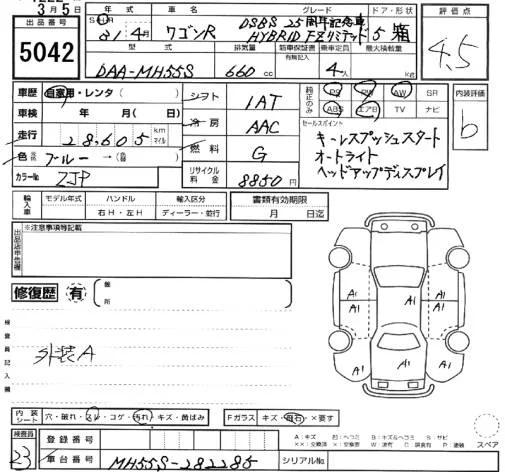 3月5日
出品番号
5042
年式 車名 グレード ドア・形状
31 4月 ワゴンR DSBS 25周年記念車
HYBRID FZリミテッド 5 箱
型式 排気量 乗車定員 最大積載量
有無記入
DAA-MH55S 660 cc 4人 kg
評価点
4.5
車歴 自家用・レンタ( )
車検 年 月( )
走行 28,605 km マイル
色 ブルー → ( )
カラーNo ZJP
シフト IAT
冷房 AAC
燃料 G
リサイクル料金 8850 円
純正のみ
PS PW AW SR
ABS エアB TV ナビ
セールスポイント
キーレスプッシュスタート
オートライト
ヘッドアップディスプレイ
内装評価
b
輸入車
モデル年式 ハンドル 輸入区分
右H・左H ディーラー・並行
書類有効期限
月 日迄
※注意事項等記載
出品店申告欄
修復歴 有 ( 箇所 )
検査員記入欄
外装A
A1 A1 A1
A1 A1 A1
A1 A1
内装シート
穴・破れ・スレ・コゲ・汚れ・キズ・黄ばみ
Fガラス キズ・飛石・×要す
検査員
23
登録番号
車台番号 MH55S-282285
シリアルNo.
A:キズ 凹:ヘコミ B:キズ&ヘコミ S:サビ
XX:交換済 X:交換要 W:波有 C:腐食有 P:塗装
スペア